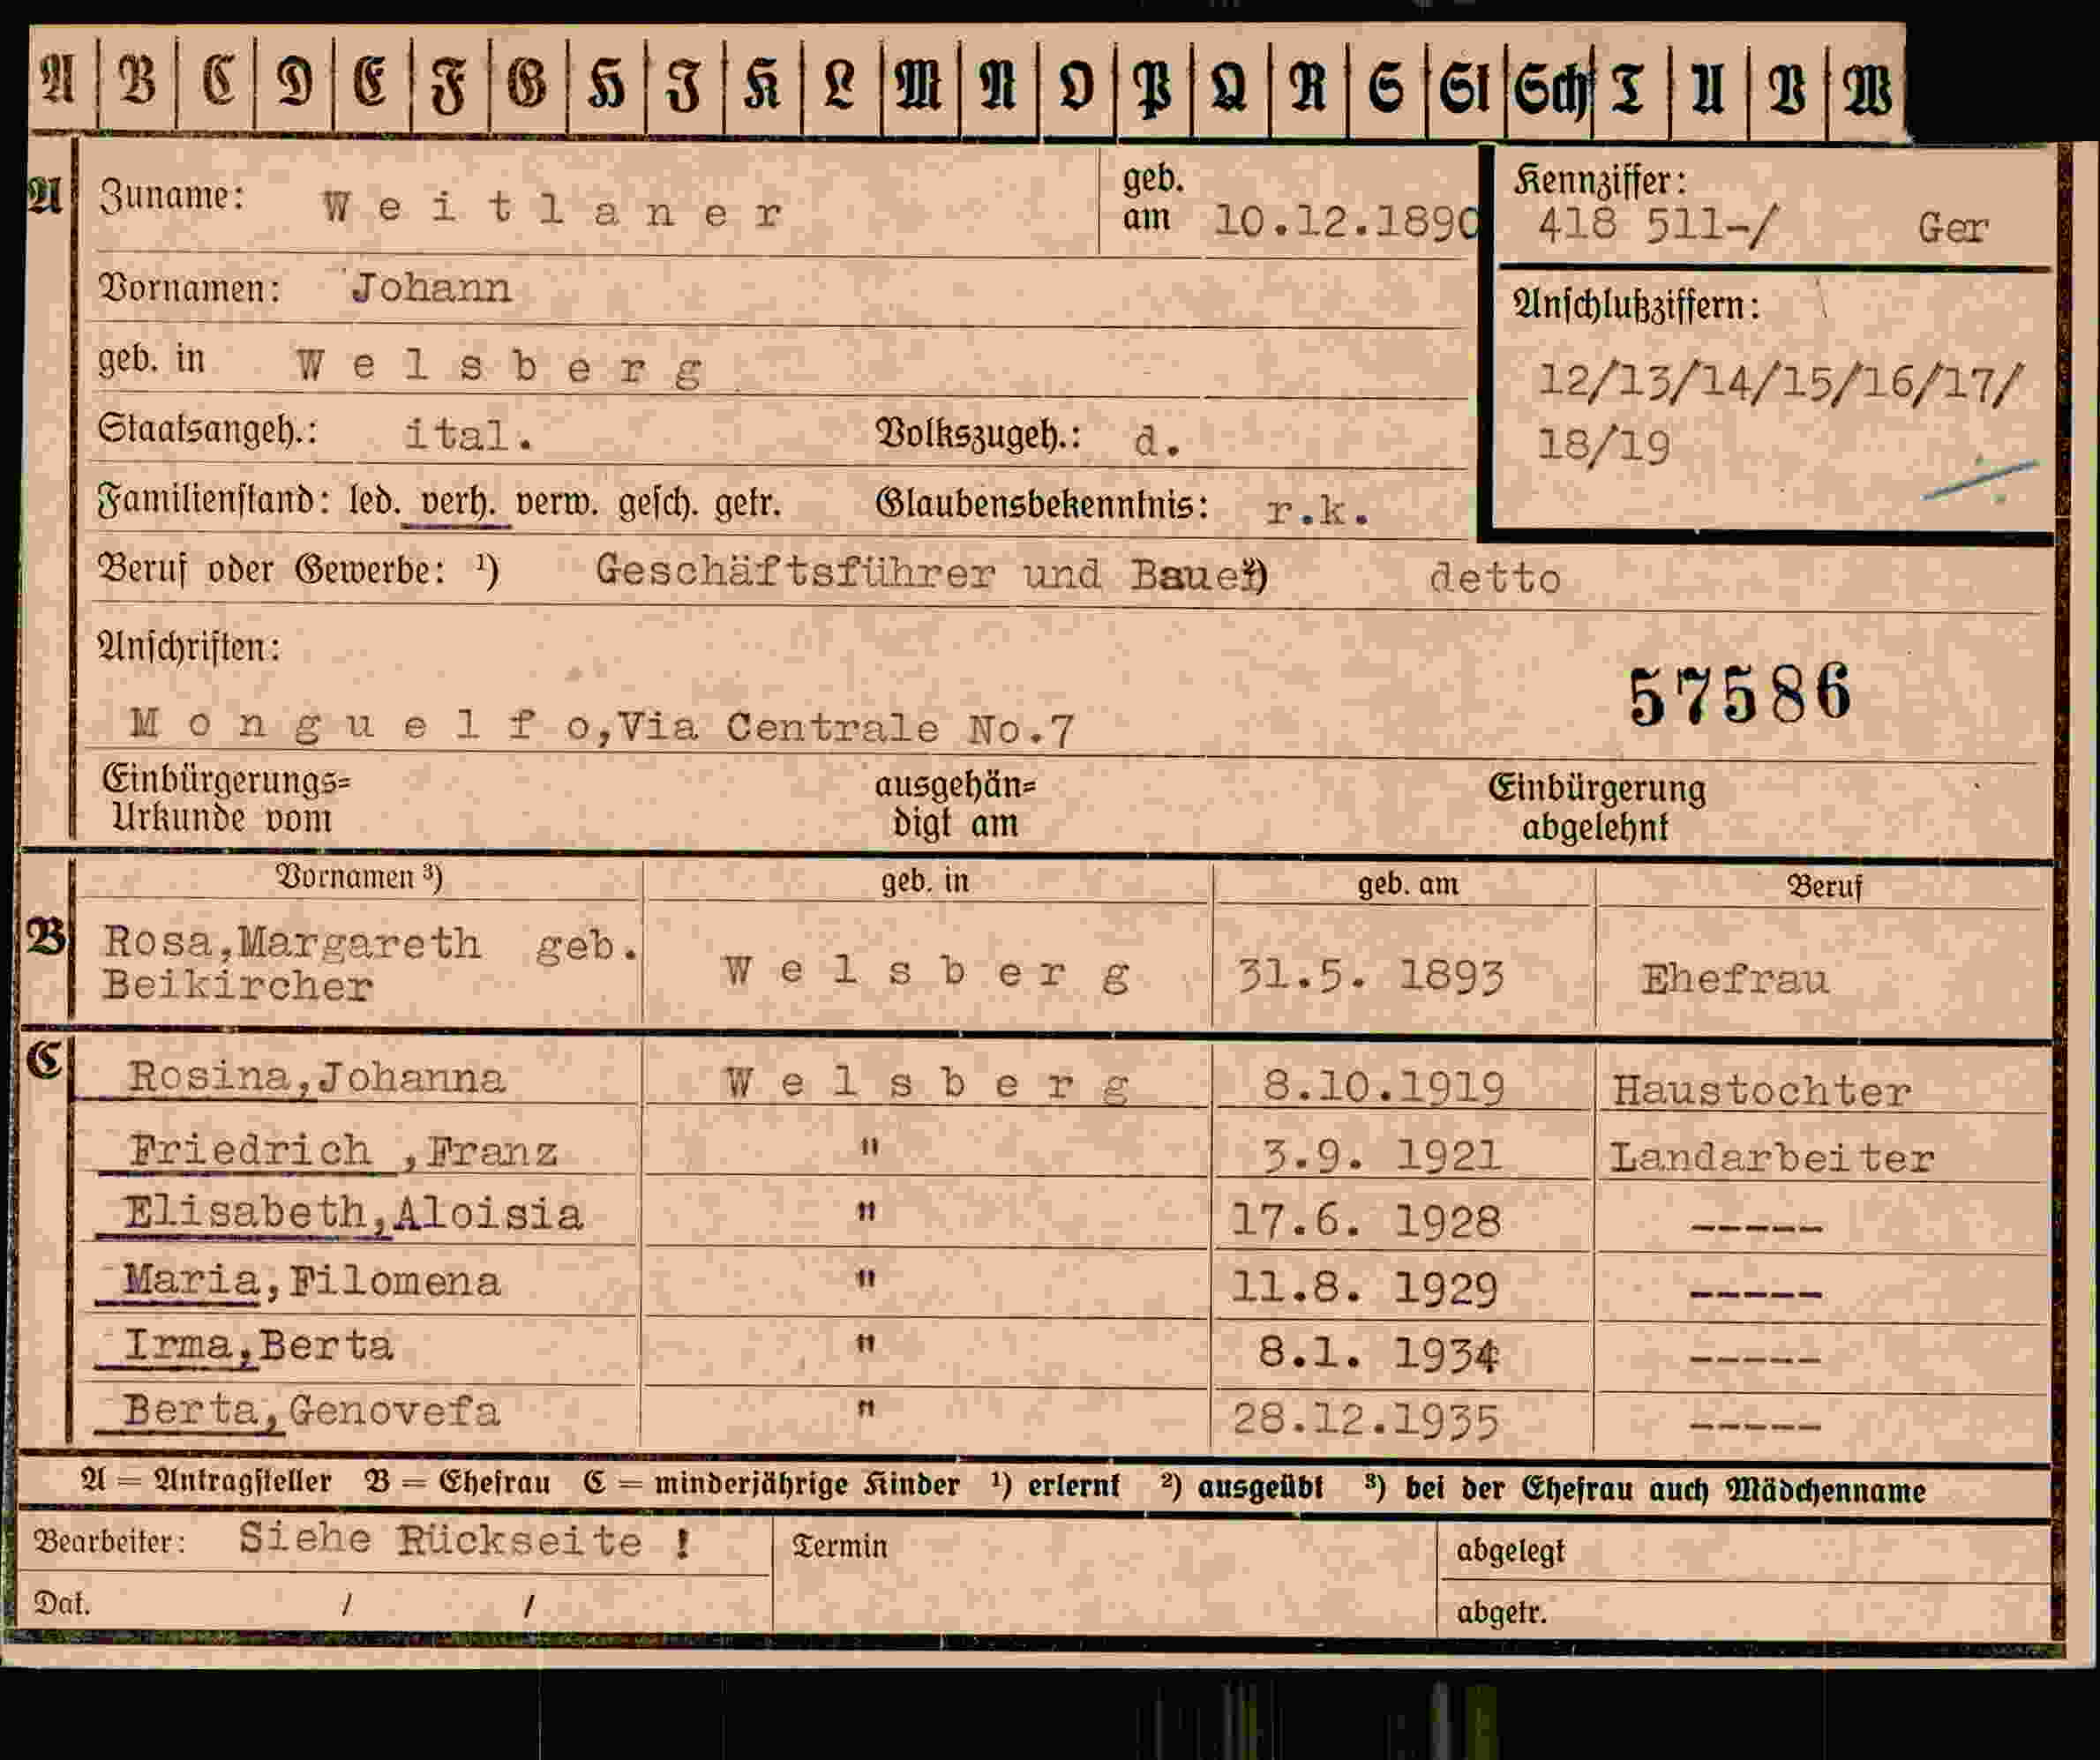 A B C D E F G H I K L M N O P Q R S St Sch T U V W
A Zuname: Weitlaner geb. am 10.12.1890 Kennziffer: 418 511-/ Ger
Vornamen: Johann
Anschlußziffern:
geb. in Welsberg
12/13/14/15/16/17/
18/19
Staatsangeh.: ital. Volkszugeh.: d.
Familienstand: led. verh. verw. gesch. getr. Glaubensbekenntnis: r.k.
Beruf oder Gewerbe: ¹) Geschäftsführer und Bauer ²) detto
Anschriften:
57586
Monguelfo, Via Centrale No.7
Einbürgerungs= ausgehän= Einbürgerung
Urkunde vom digt am abgelehnt
Vornamen ³) geb. in geb. am Beruf
B Rosa,Margareth geb. Welsberg 31.5. 1893 Ehefrau
Beikircher
C Rosina,Johanna Welsberg 8.10.1919 Haustochter
Friedrich ,Franz " 3.9. 1921 Landarbeiter
Elisabeth,Aloisia " 17.6. 1928 -----
Maria,Filomena " 11.8. 1929 -----
Irma,Berta " 8.1. 1934 -----
Berta,Genovefa " 28.12.1935 -----
A = Antragsteller B = Ehefrau C = minderjährige Kinder ¹) erlernt ²) ausgeübt ³) bei der Ehefrau auch Mädchenname
Bearbeiter: Siehe Rückseite ! Termin abgelegt
Dat. / / abgetr.